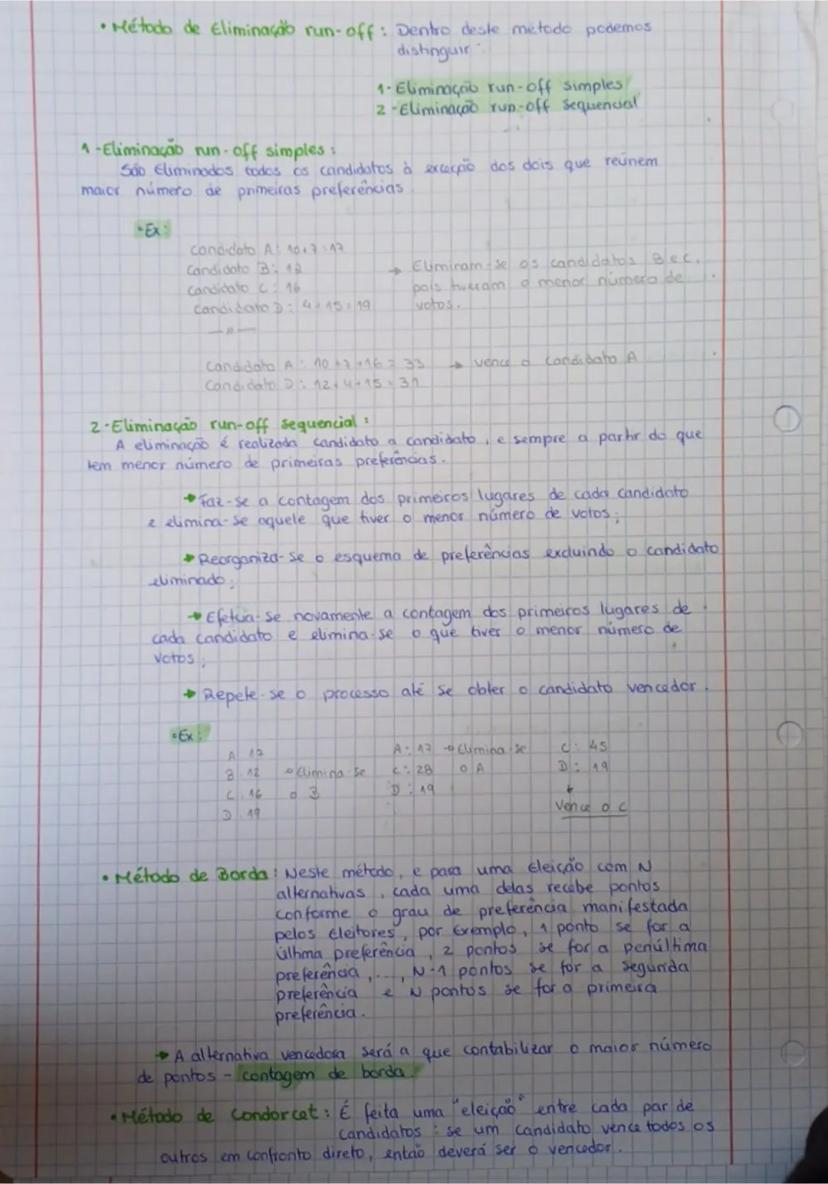 • Método de Eliminação run-off : Dentro deste método podemos
distinguir :
1 - Eliminação run-off simples
2 - Eliminação run-off sequencial
1 - Eliminação run-off simples :
São eliminados todos os candidatos à exceção dos dois que reúnem
maior número de primeiras preferências
• Ex :
candidato A : 10+7=17
candidato B : 12
candidato C : 16
candidato D : 4+15=19
→ Eliminam-se os candidatos B e C,
pois tiveram o menor número de
votos.
—"—
Candidato A : 10+7+16=33 → vence o candidato A
Candidato D : 12+4+15=31
2 - Eliminação run-off sequencial :
A eliminação é realizada candidato a candidato, e sempre a partir do que
tem menor número de primeiras preferências.
→ Faz-se a contagem dos primeiros lugares de cada candidato
e elimina-se aquele que tiver o menor número de votos;
→ Reorganiza-se o esquema de preferências excluindo o candidato
eliminado;
→ Efetua-se novamente a contagem dos primeiros lugares de
cada candidato e elimina-se o que tiver o menor número de
votos;
→ Repete-se o processo até se obter o candidato vencedor.
• Ex :
A 17
B 12 → Elimina-se
C 16 o B
D 19
A : 17 → Elimina-se
C : 28 o A
D : 19
C : 45
D : 19
↓
Vence o C
• Método de Borda : Neste método, e para uma eleição com N
alternativas, cada uma delas recebe pontos
conforme o grau de preferência manifestada
pelos eleitores, por exemplo, 1 ponto se for a
última preferência, 2 pontos se for a penúltima
preferência, ..., N-1 pontos se for a segunda
preferência e N pontos se for a primeira
preferência.
→ A alternativa vencedora será a que contabilizar o maior número
de pontos - contagem de borda.
• Método de Condorcet : É feita uma "eleição" entre cada par de
candidatos : se um candidato vence todos os
outros em confronto direto, então deverá ser o vencedor.